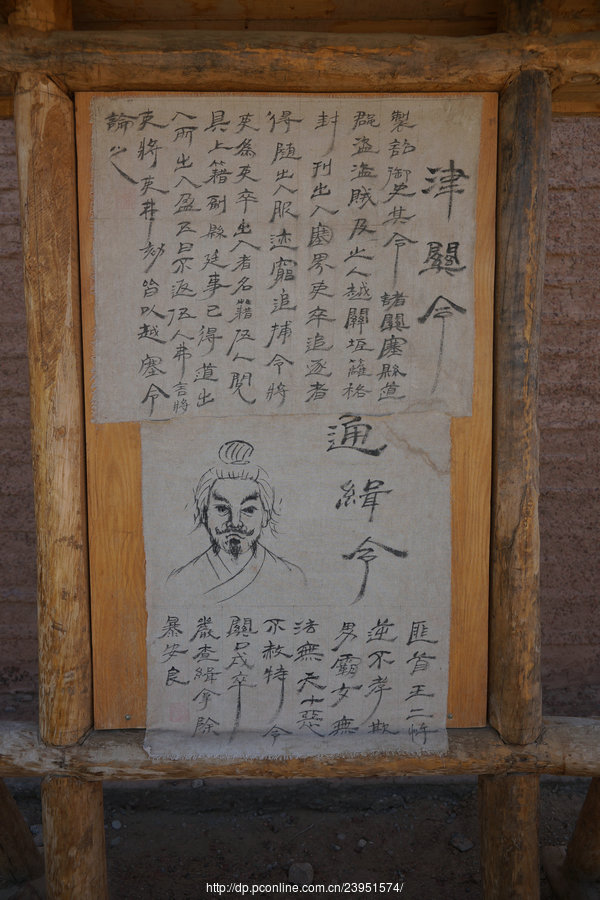 津關令
製詔御史其令諸關塞縣道
群盜盜賊及亡人越關垣籬格
封刊出入塞界吏卒追逐者
得隨出入服迹窮追捕令將
吏為吏卒出入者名籍伍人閱
具上籍副縣廷事已得道出
入所出入盈五日不返伍人弗言將
吏將吏弗劾皆以越塞令
論之
通緝令
匪首王二忤
逆不孝欺
男霸女無
法無天十惡
不赦特令
關口戍卒
嚴查緝拿除
暴安良
http://dp.pconline.com.cn/23951574/